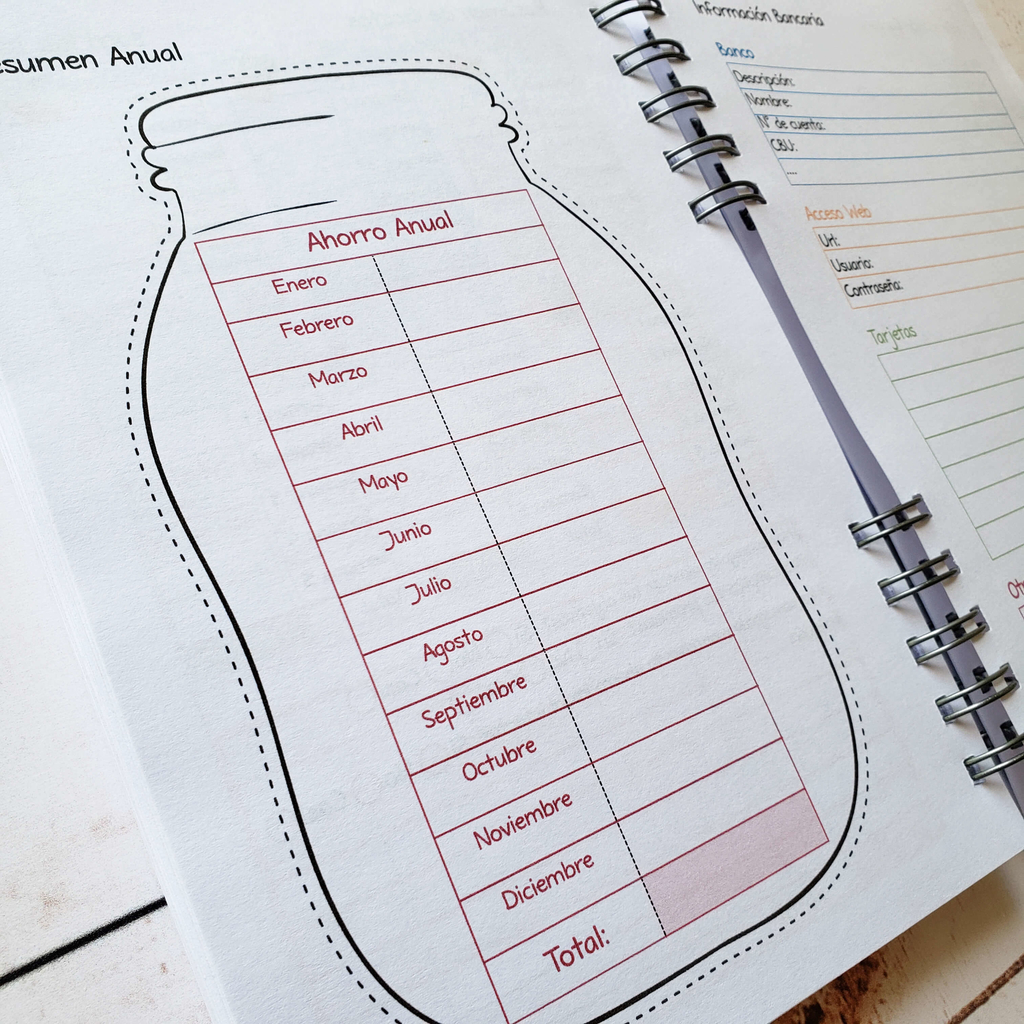 esumen Anual
Ahorro Anual
Enero
Febrero
Marzo
Abril
Mayo
Junio
Julio
Agosto
Septiembre
Octubre
Noviembre
Diciembre
Total:
Información Bancaria
Banco
Descripción:
Nombre:
N° de cuenta:
CBU:
....
Acceso Web
Url:
Usuario:
Contraseña:
Tarjetas